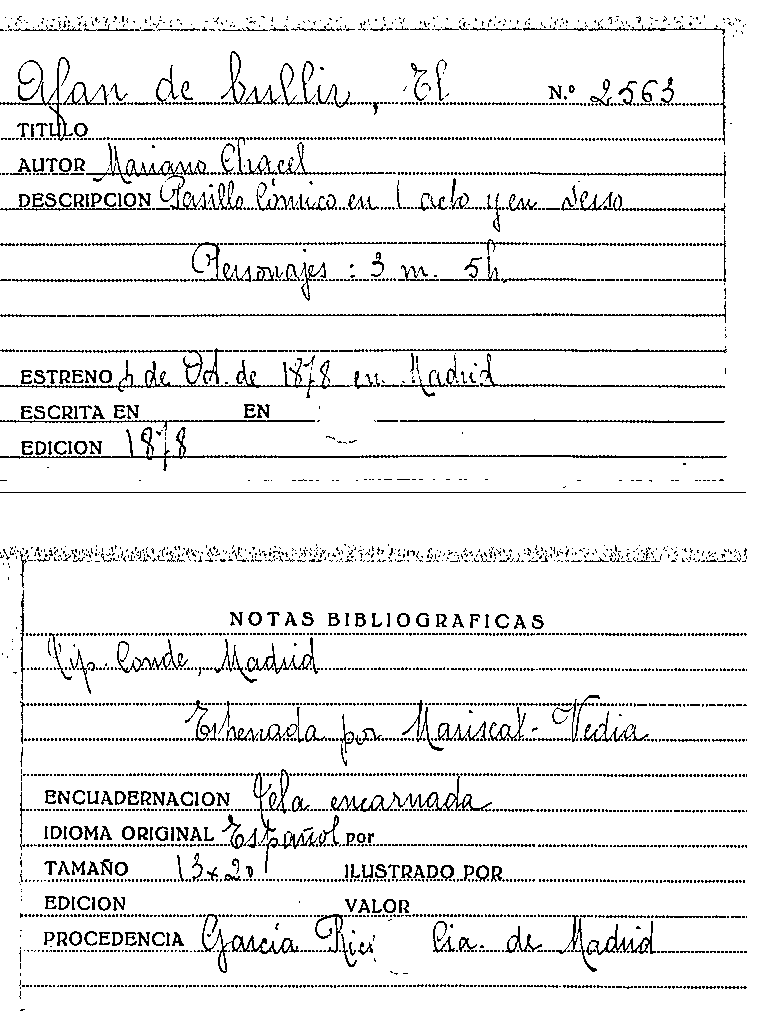 Afan de bullir, El N.º 2563
TITULO
AUTOR Mariano Chacel
DESCRIPCION Pasillo Cómico en 1 acto y en verso
Personajes : 3 m. 5 h.
ESTRENO de Oct. de 1878 en Madrid
ESCRITA EN EN
EDICION 1878
NOTAS BIBLIOGRAFICAS
Tip. Conde, Madrid
Estrenada por Mariscal - Vedia
ENCUADERNACION Tela encarnada
IDIOMA ORIGINAL Español por
TAMAÑO 13x20 ILUSTRADO POR
EDICION VALOR
PROCEDENCIA García Rico Cia. de Madrid